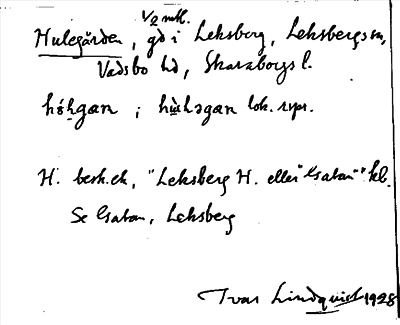 1/2 mtl.
Hulegården, gd i Leksberg, Leksbergs sn,
Vadsbo hd, Skaraborgs l.
hó̠gan i hu̠lɘgan lok. rspr.
H. besk. ek. "Leksberg H. eller "Gatan"" kb.
Se Gatan, Leksberg
Ivar Lindquist 1928